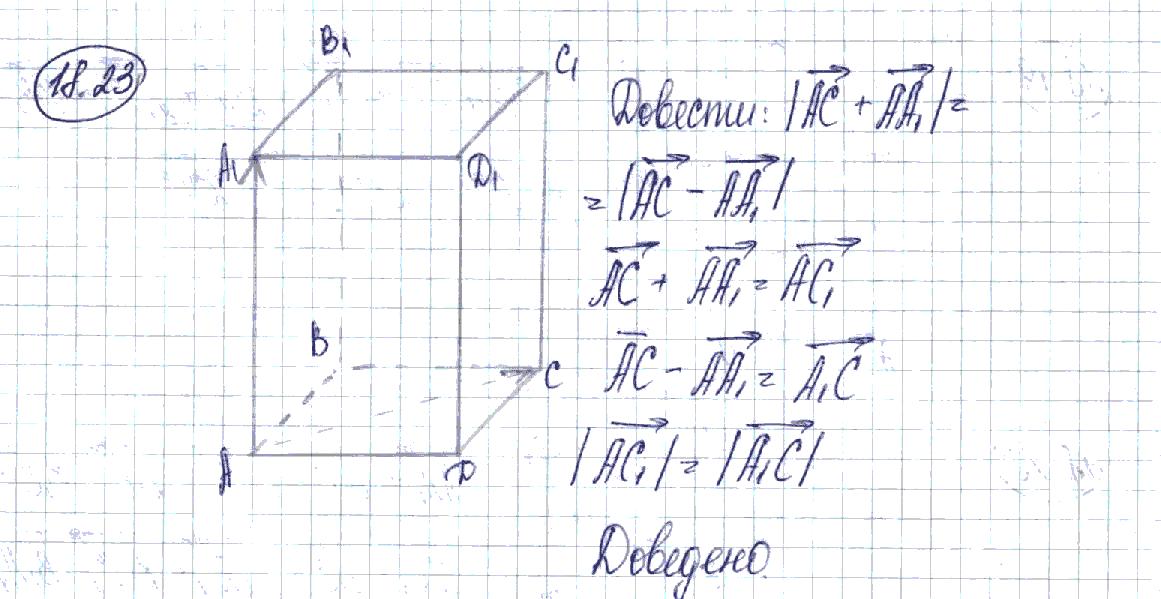 18.23
B₁
C₁
A₁
D₁
B
C
A
D
Довести: |AC⃗ + AA₁⃗| =
= |AC⃗ - AA₁⃗|
AC⃗ + AA₁⃗ = AC₁⃗
AC̅ - AA₁⃗ = A₁C⃗
|AC₁⃗| = |A₁C⃗|
Доведено